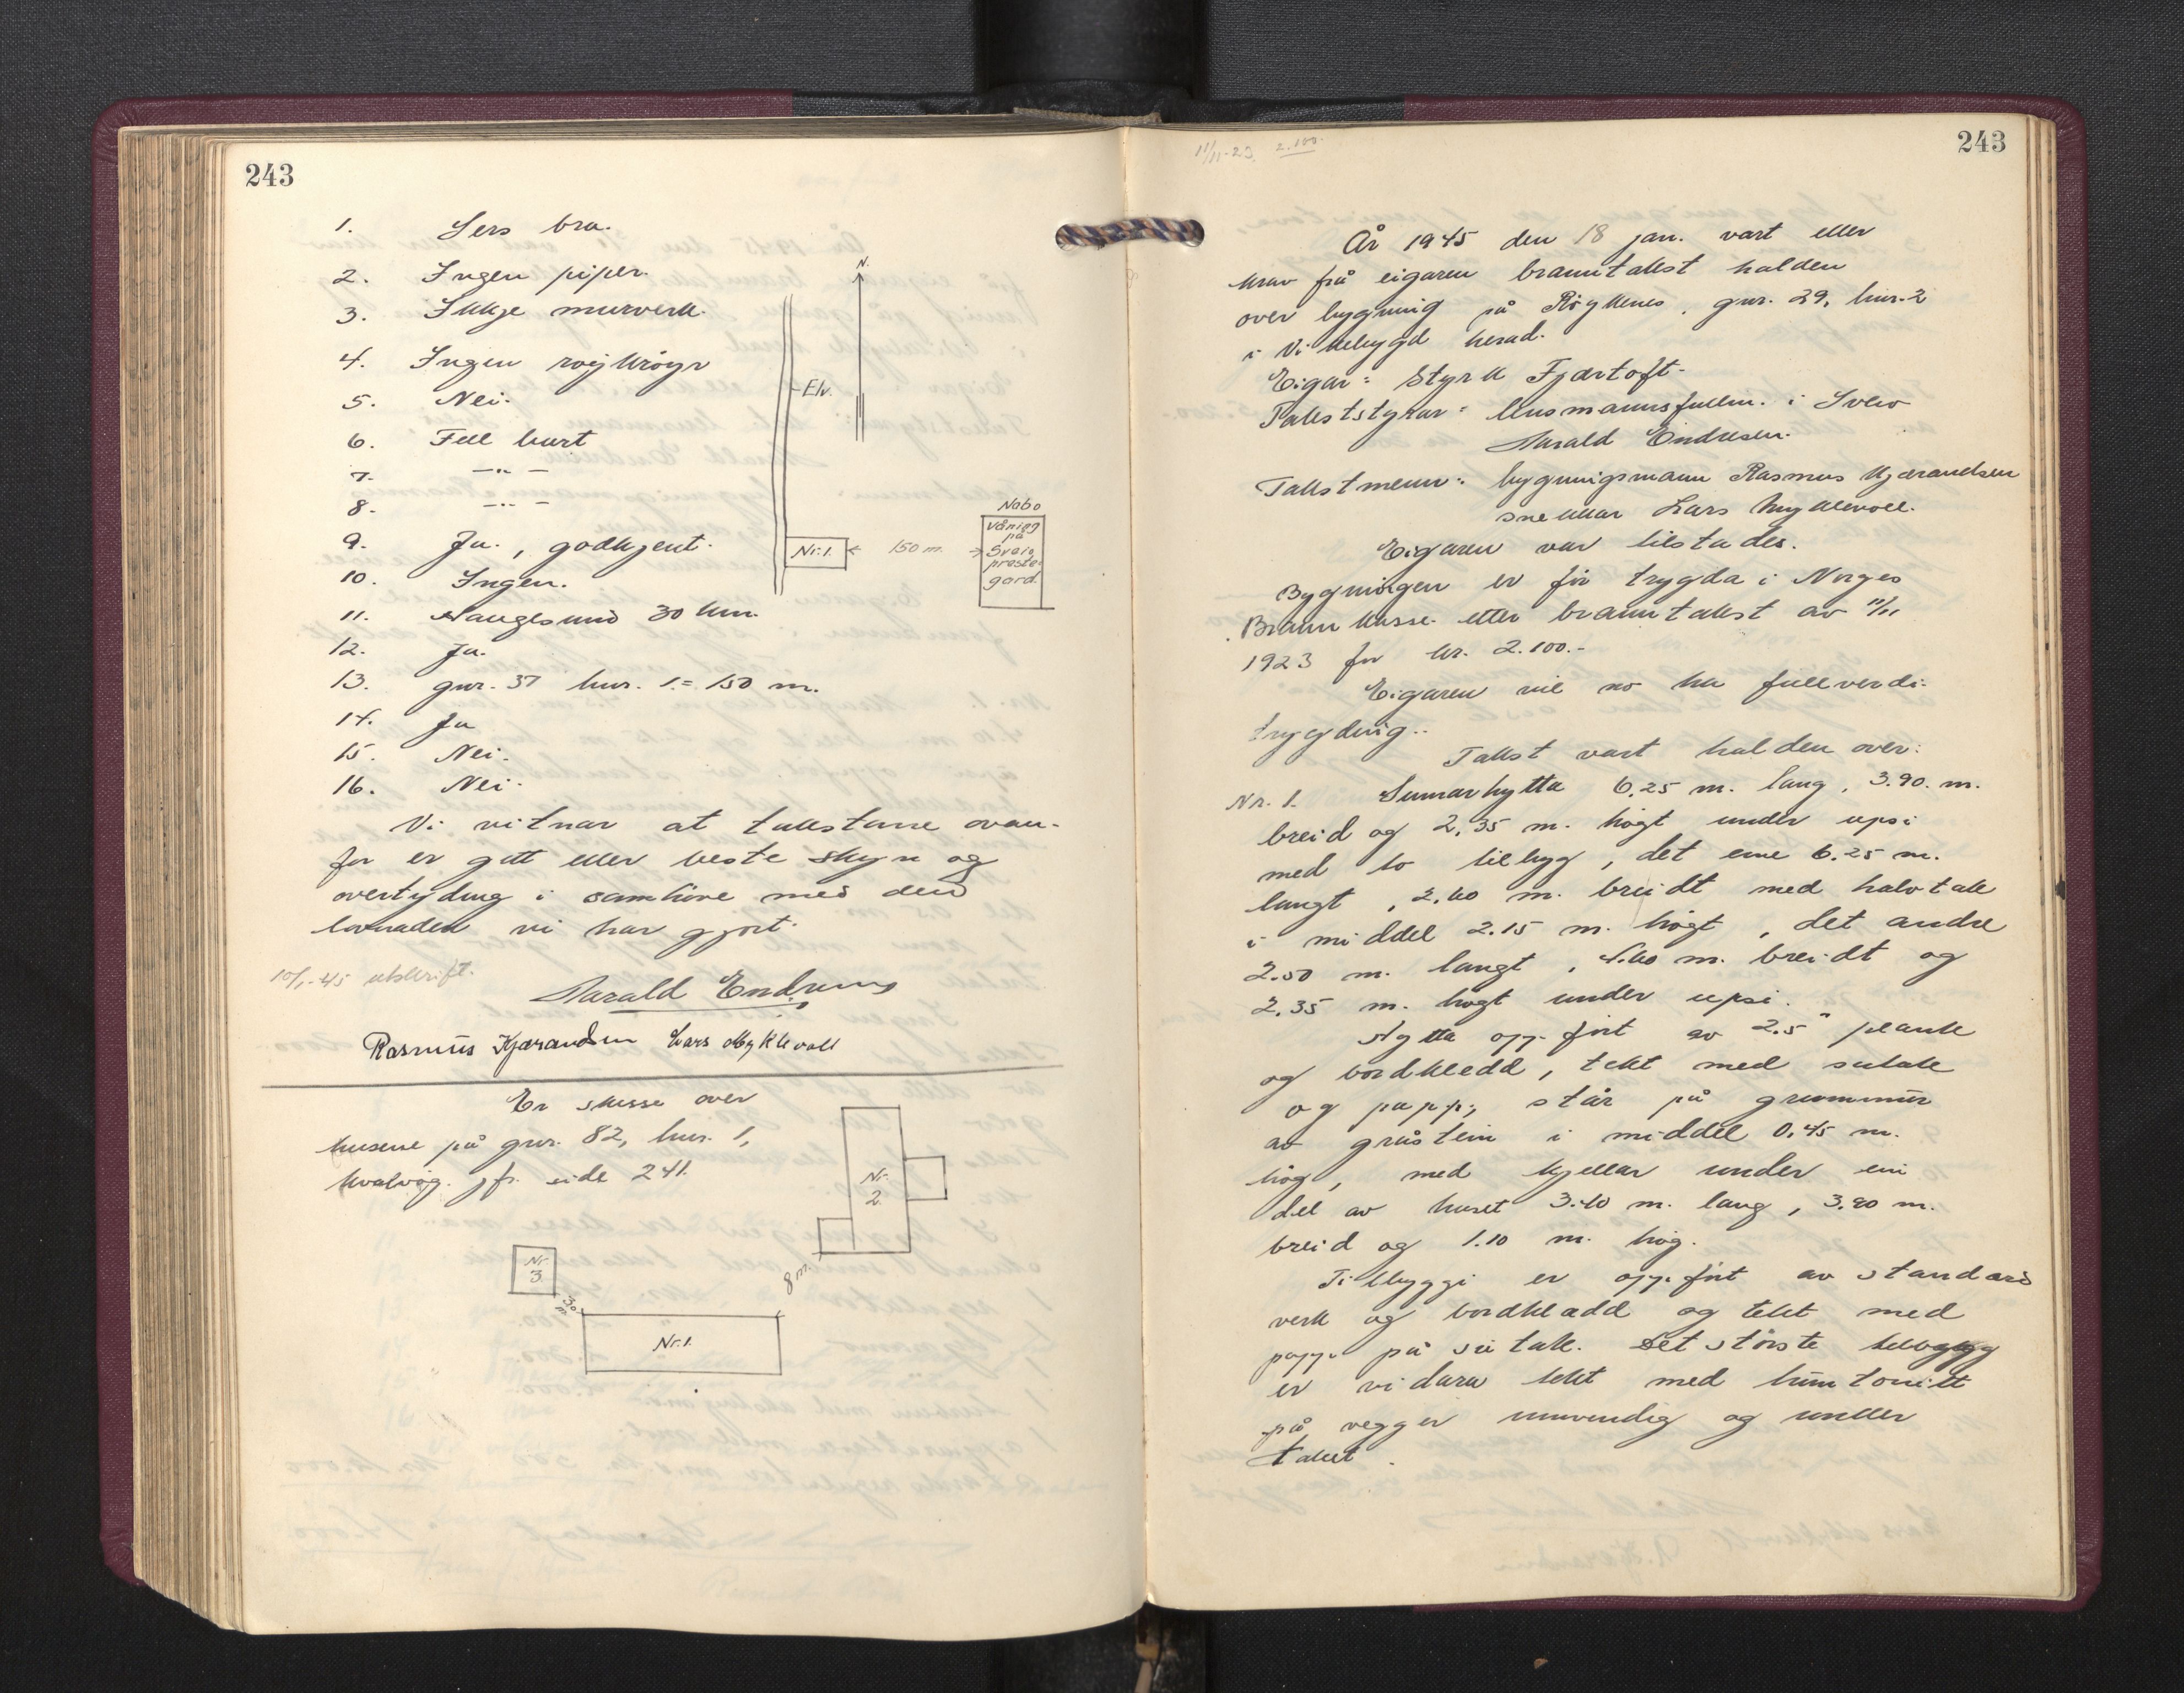 243
1. Sers bra.
2. Ingen piper.
3. Ikkje murverk.
4. Ingen røykrøyr
5. Nei.
6. Fell burt
7. — " —
8. — " —
9. Ja., godkjent.
10. Ingen.
11. Haugesund 30 km.
12. Ja.
13. gnr. 37 bnr. 1.= 150 m.
14. Ja
15. Nei.
16. Nei.
N.
Elv.
Nr. 1.
150 m.
Nabo
Våningg
på
Sveio
preste-
gard.
Vi vitnar at takstane ovan-
for er gitt etter beste skyn og
overtyding i samhøve med den
lovnaden vi har gjort.
10/1-45 utskrift.
Harald Endresen
Rasmus Kjærandsen Lars Myklevoll
Er skisse over
husene på gnr. 82, bnr. 1,
Kvalvåg. jfr. side 241.
Nr.
2.
8 m.
Nr.
3.
30
m.
Nr. 1.
11/11-23. 2.100.-
243
År 1945 den 18 jan. vart etter
krav frå eigaren branntakst halden
over bygning på Røykenes, gnr. 29, bnr. 2
i Vikebygd herad.
Eigar: Styrk Fjærtoft.
Takststyrar: lensmannsfullm. i Sveio
Harald Endresen.
Takstmenn: bygningsmann Rasmus Kjærandsen
snekkar Lars Myklevoll.
Eigaren var tilstades.
Bygningen er før trygda i Norges
Brannkasse etter branntakst av 11/11
1923 for kr. 2.100.-
Eigaren vil no ha fullverdi-
trygding..
Takst vart halden over:
Nr. 1. Sumarhytta 6.25 m. lang, 3.90. m.
breid og 2.35 m. høgt under upsi
med to tilbyg, det eine 6.25 m.
langt, 2.60 m. breidt med halvtak
i middel 2.15 m. høgt, det andre
2.50 m. langt, 1.60 m. breidt og
2.35 m. høgt under upsi.
Hytta oppført av 2.5" plank
og bordkledd, tekt med sutak
og papp; står på grunnmur
av gråstein i middel 0.45 m.
høg, med kjellar under ein
del av huset 3.40 m. lang, 3.20 m.
breid og 1.10 m. høg.
Tilbyggi er oppført av standard
verk og bordkledd og tekt med
papp på sutak. Det største tilbygg
er vidare tekt med huntonitt
på vegger innvendig og under
taket.